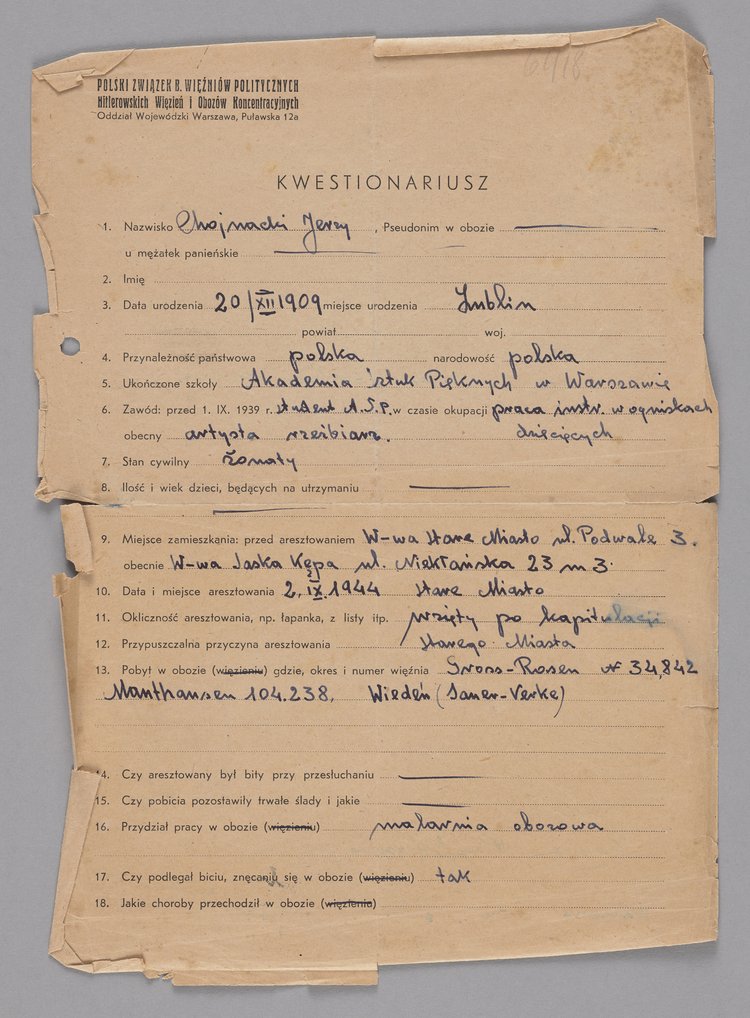 6918
POLSKI ZWIĄZEK B. WIĘŹNIÓW POLITYCZNYCH
Hitlerowskich Więzień i Obozów Koncentracyjnych
Oddział Wojewódzki Warszawa, Puławska 12a
KWESTIONARIUSZ
1. Nazwisko Chojnacki Jerzy, Pseudonim w obozie
u mężatek panieńskie
2. Imię
3. Data urodzenia 20/XII 1909 miejsce urodzenia Lublin
powiat woj.
4. Przynależność państwowa polska narodowość polska
5. Ukończone szkoły Akademia Sztuk Pięknych w Warszawie
6. Zawód: przed 1. IX. 1939 r. student A.S.P. w czasie okupacji praca instr. w ogniskach
obecny artysta rzeźbiarz. dziecięcych
7. Stan cywilny żonaty
8. Ilość i wiek dzieci, będących na utrzymaniu
9. Miejsce zamieszkania: przed aresztowaniem W-wa Stare Miasto ul. Podwale 3.
obecnie W-wa Saska Kępa ul. Niekłańska 23 m 3.
10. Data i miejsce aresztowania 2. IX. 1944 Stare Miasto
11. Okliczność aresztowania, np. łapanka, z listy itp. wzięty po kapitulacji
12. Przypuszczalna przyczyna aresztowania Starego Miasta
13. Pobyt w obozie (więzieniu) gdzie, okres i numer więźnia Gross-Rosen № 34,842
Manthausen 104.238, Wiedeń (Sauer-Verke)
14. Czy aresztowany był bity przy przesłuchaniu
15. Czy pobicia pozostawiły trwałe ślady i jakie
16. Przydział pracy w obozie (więzieniu) malarnia obozowa
17. Czy podlegał biciu, znęcaniu się w obozie (więzieniu) tak
18. Jakie choroby przechodził w obozie (więzieniu)